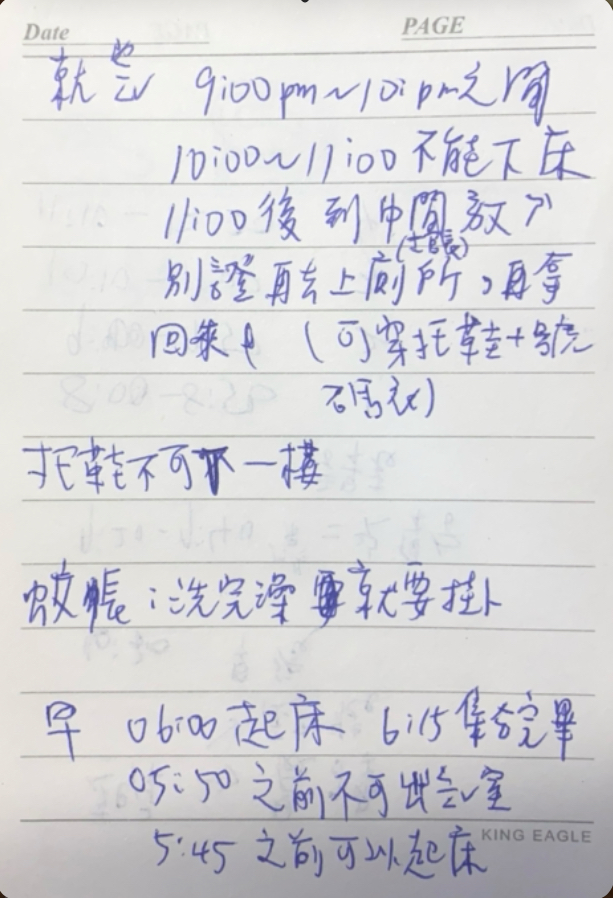 Date PAGE
就寢 9:00pm~10:pm之間
10:00~11:00不能下床
11:00後 到中間放
別證再去上廁所,再拿
回來 (可穿托鞋+號
碼衣)
托鞋不可下一樓
蚊帳:洗完澡 就要掛
早 06:00起床 6:15集合完畢
05:50 之前不可出寢室
5:45 之前可以起床
KING EAGLE